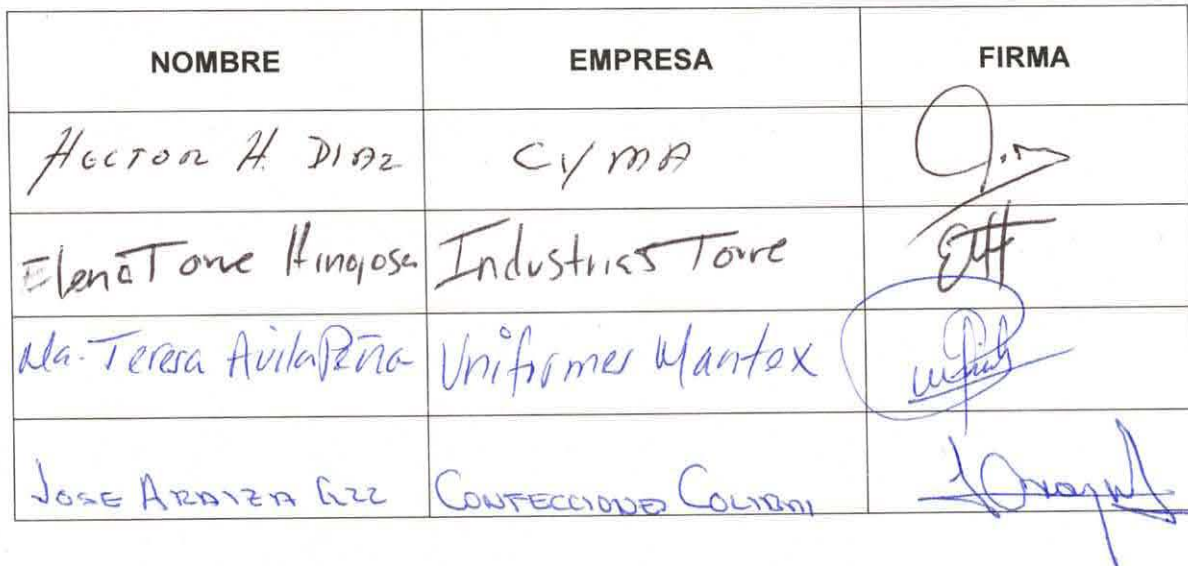 NOMBRE EMPRESA FIRMA
HECTOR H. DIAZ CYMA
Elena Torre Hinojosa Industrias Torre
Ma. Teresa Avila Peña Uniformes Mantex
JOSE ARAIZA GZZ CONFECCIONES